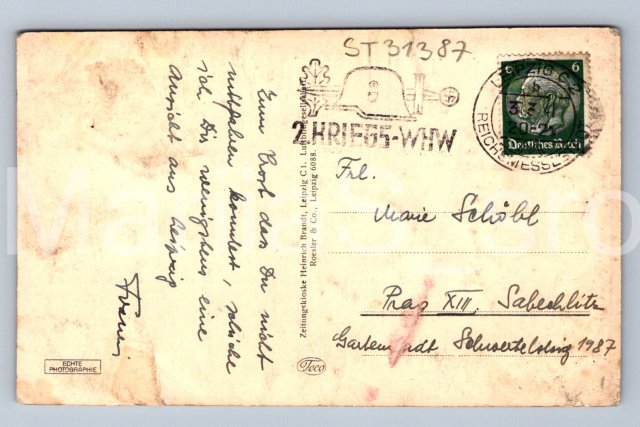 ST31387
LEIPZIG C
20-21
REICHSMESSE
6
6
Deutsches Reich
2. KRIEGS-WHW
Zum Trost das Du nicht
mitfahren konntest, schicke
ich Dir wenigstens eine
Ansicht aus Leipzig
Zeitungskioske Heinrich Brandt, Leipzig C1.
Roesler & Co., Leipzig 6088.
Frl.
Marie Schöbl
Prag XIII. Sabechlitz
Gartenstadt 1987
ECHTE
PHOTOGRAPHIE
Teco